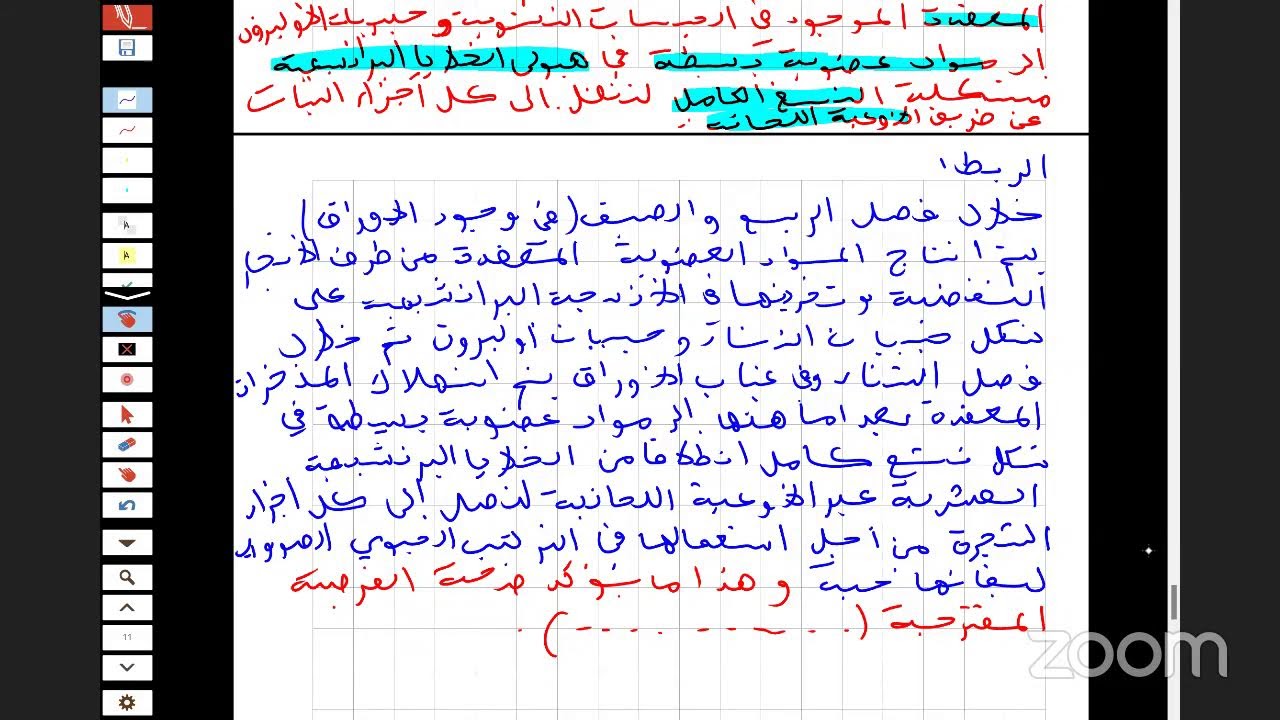 المعقدة الموجود في الحبيبات النشوية و حبيبات الأوليرون
الى مواد عضوية بسيطة في هيولى الخلايا البرانشيمية
مشكلة النسغ الكامل لتنتقل الى كل أجزاء النبات
عن طريق الأوعية اللحائية
الربط:
خلال فصل الربيع والصيف (في وجود الأوراق)
يتم انتاج المواد العضوية المعقدة من طرف
وتخزينها في البرانشيمية على
شكل حبيبات النشاء وحبيبات أوليرون ثم خلال
فصل الشتاء وفي غياب الأوراق يتم استهلاك المدخرات
المعقدة بعد اماهتها الى مواد عضوية بسيطة في
شكل نسغ كامل انطلاقا من الخلايا البرنشيمية
عبر الأوعية اللحائية لتصل الى كل أجزاء
الشجرة من أجل استعمالها في التركيب الحيوي
لبقائها حية و هذا ما يؤكد صحة الفرضية
المقترحة (..........).
zoom
11
A
A